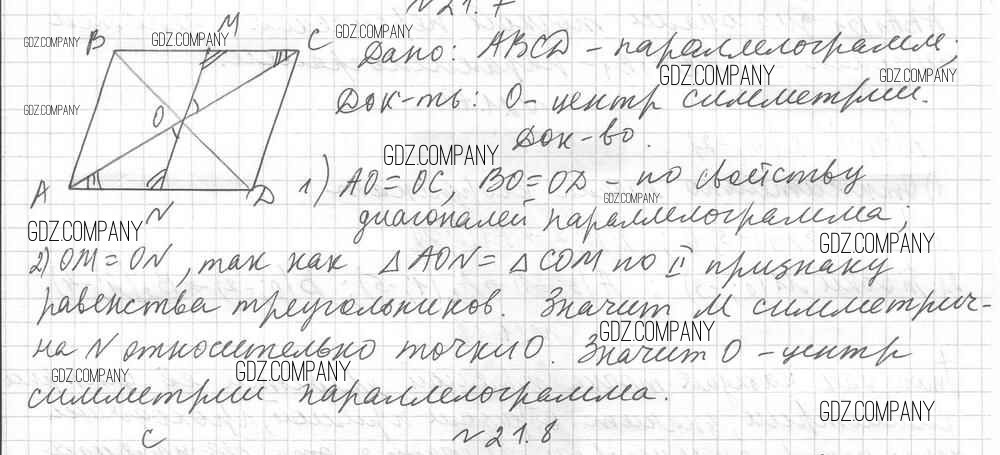 №21.7
B M C
Дано: ABCD – параллелограмм;
Док-ть: О- центр симметрии.
Док-во.
O
A N D
1) AO=OC, BO=OD – по свойству
диагоналей параллелограмма;
2) OM=ON, так как △AON=△COM по II признаку
равенства треугольников. Значит M симметрич-
на N относительно точки О. Значит О – центр
симметрии параллелограмма.
С №21.8
GDZ.COMPANY
GDZ.COMPANY
GDZ.COMPANY
GDZ.COMPANY
GDZ.COMPANY
GDZ.COMPANY
GDZ.COMPANY
GDZ.COMPANY
GDZ.COMPANY
GDZ.COMPANY
GDZ.COMPANY
GDZ.COMPANY
GDZ.COMPANY
GDZ.COMPANY